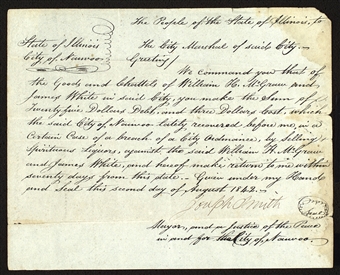 The People of the State of Illinois, to
State of Illinois
City of Nauvoo
The City Marshal of said City.—
Greeting!
We command you that of
the Goods and Chattels of William H. McGraw and
James White in said City, you make the Sum of
Twenty five Dollars Debt, and three Dollars Cost, which
the said City of Nauvoo lately recovered before me, in a
Certain Case of a breach of a City Ordinance, by selling
Spirituous Liquors, against the said William H. McGraw
and James White, and hereof make return to me within
seventy days from this date.— Given under my Hand
and Seal this second day of August 1842.—
Joseph Smith
Mayor, and a Justice of the Peace
in and for the City of Nauvoo.